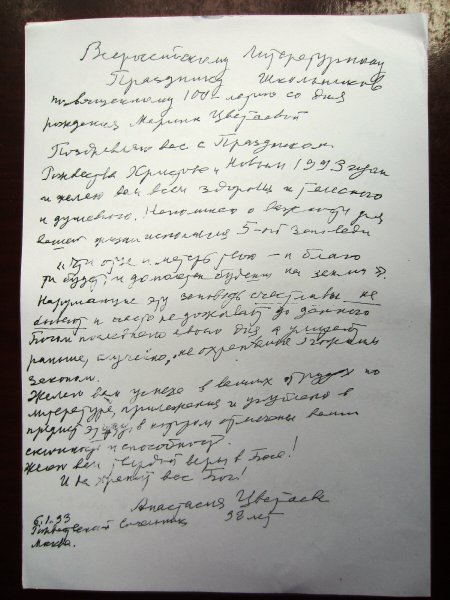 Всероссийскому Литературному
Празднику Школьников
посвященному 100-летию со дня
рождения Марины Цветаевой
Поздравляю вас с Праздником
Рождества Христова и Новым 1993 годом
и желаю вам всем здоровья и телесного
и душевного. Напоминаю о важности для
вашей жизни исполнения 5-ой заповеди
"Чти отца и матерь твою - и благо
ти будет и долголетен будеши на земли".
Нарушающие эту заповедь счастливы не
бывают и часто не доживают до данного
Богом последнего своего дня а умирают
раньше, случайно, не охраненные
законом.
Желаю вам успеха в ваших трудах по
литературе, прилежания и углубления в
предмет в котором отмечены ваши
склонности и способности.
Желаю вам твердой веры в Бога!
И да хранит вас Бог!
Анастасия Цветаева
98 лет
6.1.93
Рождественский Сочельник
Москва.